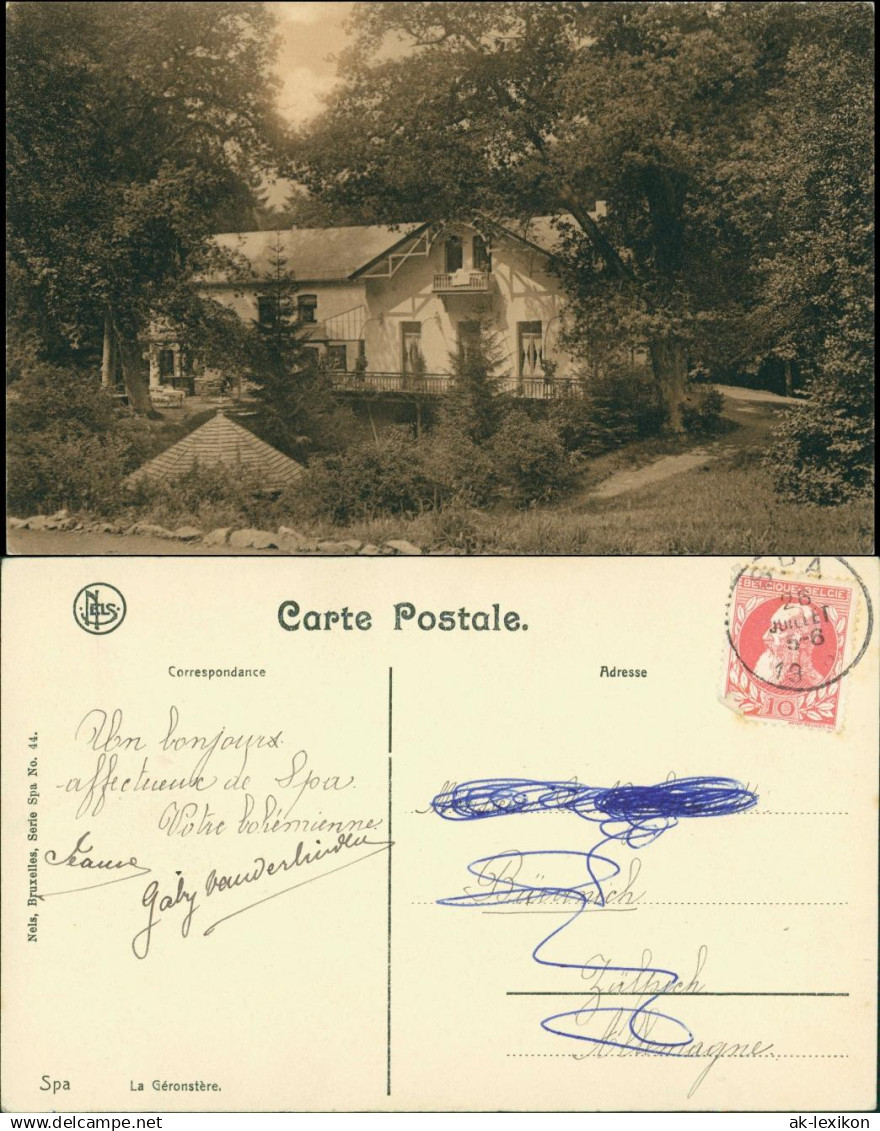 NELS
Carte Postale.
SPA
26
JUILLET
5-6
BELGIQUE·BELGIE
10
Correspondance
Adresse
Un bonjours
affectueux de Spa.
Votre bohémienne
Jeanne
Gaby Vanderlinden
Bürvenich
Zülpich
Allemagne.
Nels, Bruxelles, Serie Spa No. 44.
Spa La Géronstère.
delcampe.net
ak-lexikon